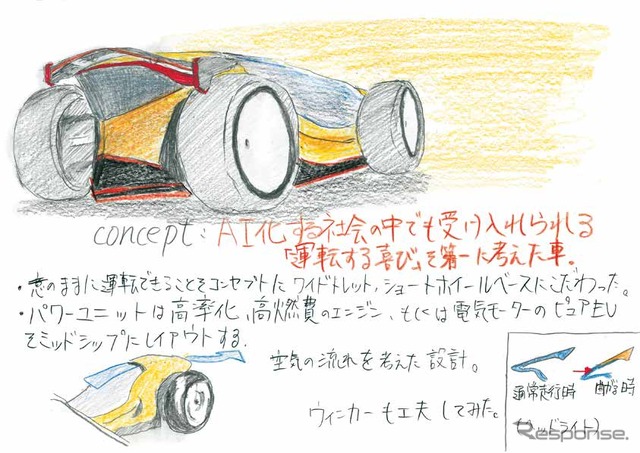 concept: AI化する社会の中でも受け入れられる
「運転する喜び」を第一に考えた車。
・意のままに運転できることをコンセプトにワイドトレット、ショートホイールベースにこだわった。
・パワーユニットは高率化、高燃費のエンジン、もしくは電気モーターのピュアEV
をミッドシップにレイアウトする。
空気の流れを考えた設計。
ウィンカーも工夫してみた。
通常走行時
曲がる時
(ヘッドライト)
Response.